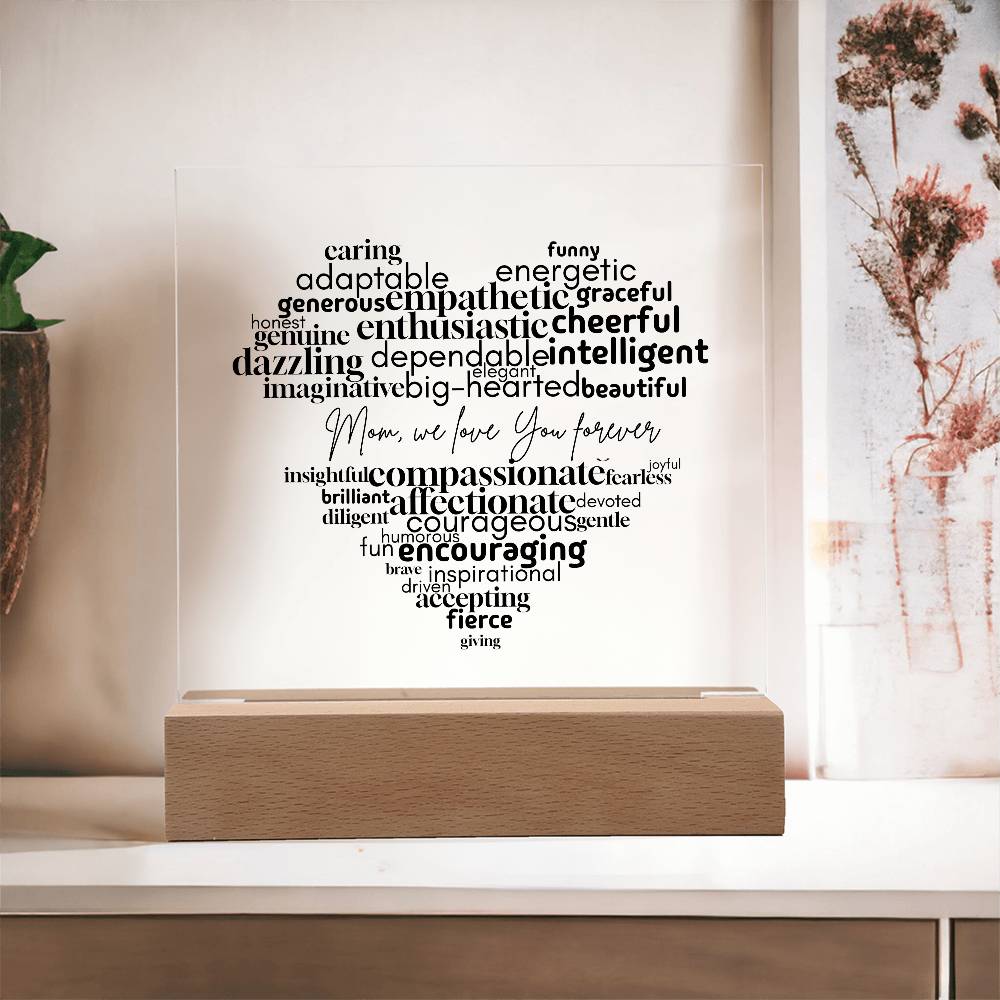 caring funny
adaptable energetic
generous empathetic graceful
honest genuine enthusiastic cheerful
dazzling dependable intelligent
elegant
imaginative big-hearted beautiful
Mom, we love You forever
insightful compassionate fearless joyful
brilliant affectionate devoted
diligent courageous gentle
humorous
fun encouraging
brave inspirational
driven
accepting
fierce
giving